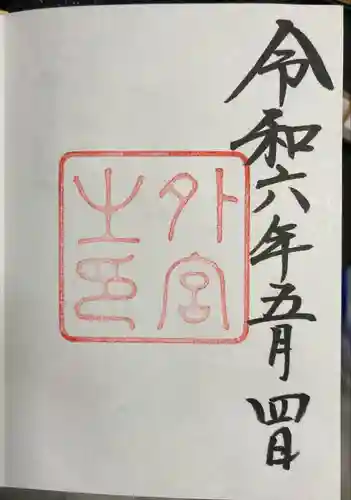 令和六年五月四日
外宮
之印